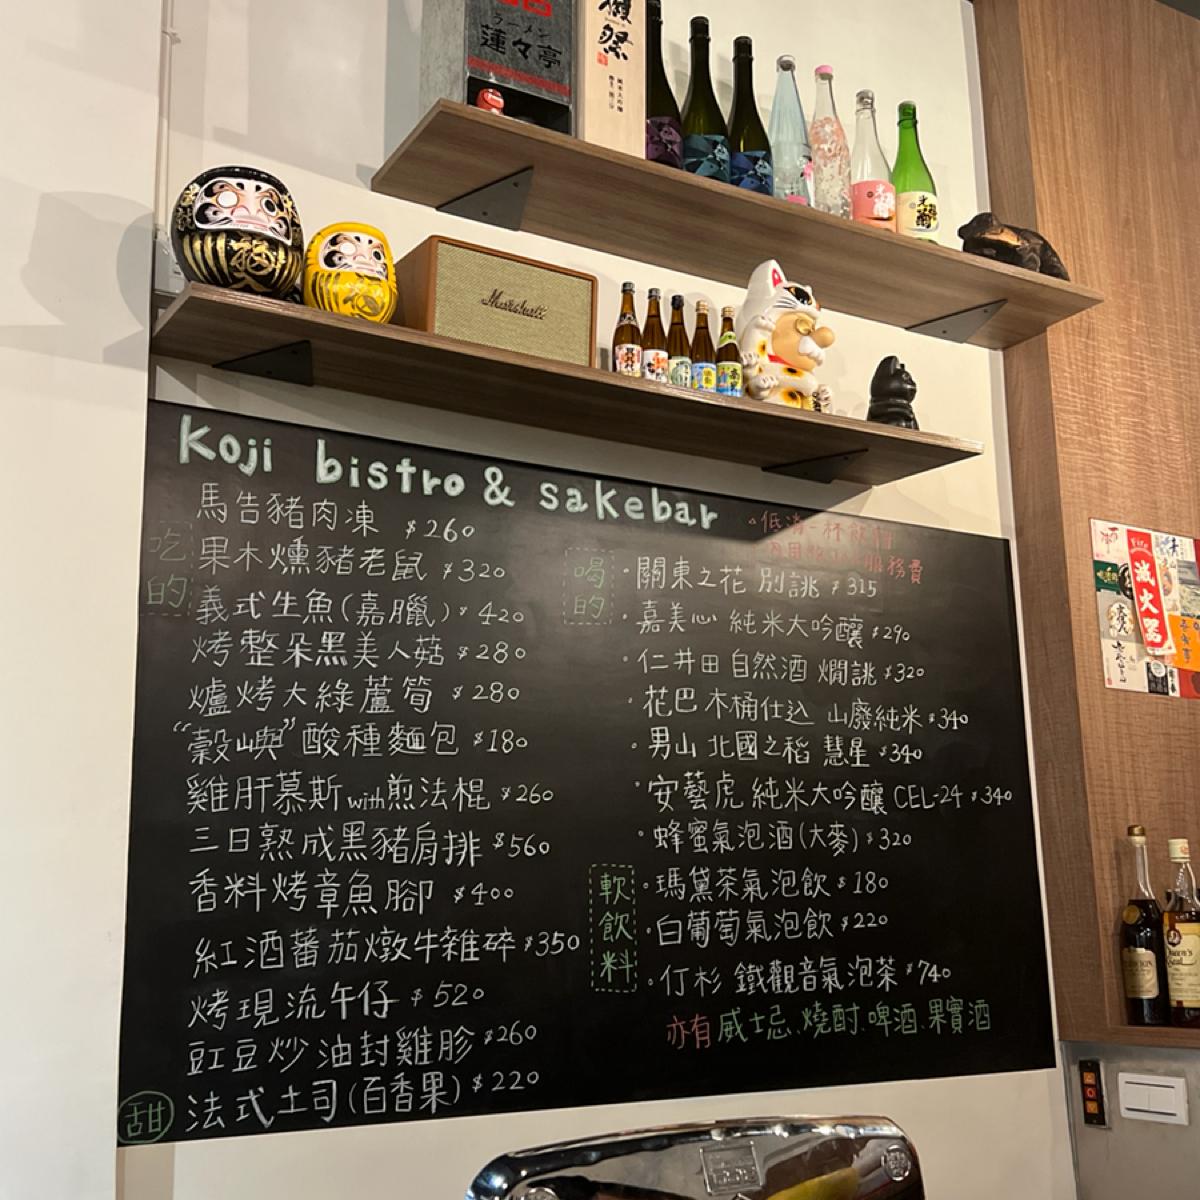 ラーメン
蓮々亭
獺祭
Marshall
Koji bistro & sakebar
吃的
馬告豬肉凍 $260
果木燻豬老鼠 $320
義式生魚(嘉臘) $420
烤整朵黑美人菇 $280
爐烤大綠蘆筍 $280
“穀嶼”酸種麵包 $180
雞肝慕斯with煎法棍 $260
三日熟成黑豬肩排 $560
香料烤章魚腳 $400
紅酒蕃茄燉牛雜碎 $350
烤現流午仔 $520
豇豆炒油封雞胗 $260
甜
法式土司(百香果) $220
。低消一杯飲料
服務費
喝的
·關東之花 別誂 $315
·嘉美心 純米大吟釀 $290
·仁井田 自然酒 燗誂 $320
·花巴 木桶仕込 山廢純米 $340
·男山 北國之稻 慧星 $340
·安藝虎 純米大吟釀 CEL-24 $340
·蜂蜜氣泡酒(大麥) $320
軟飲料
·瑪黛茶氣泡飲 $180
·白葡萄氣泡飲 $220
·仃杉 鐵觀音氣泡茶 $740
亦有威士忌.燒酎.啤酒.果實酒
滅火器